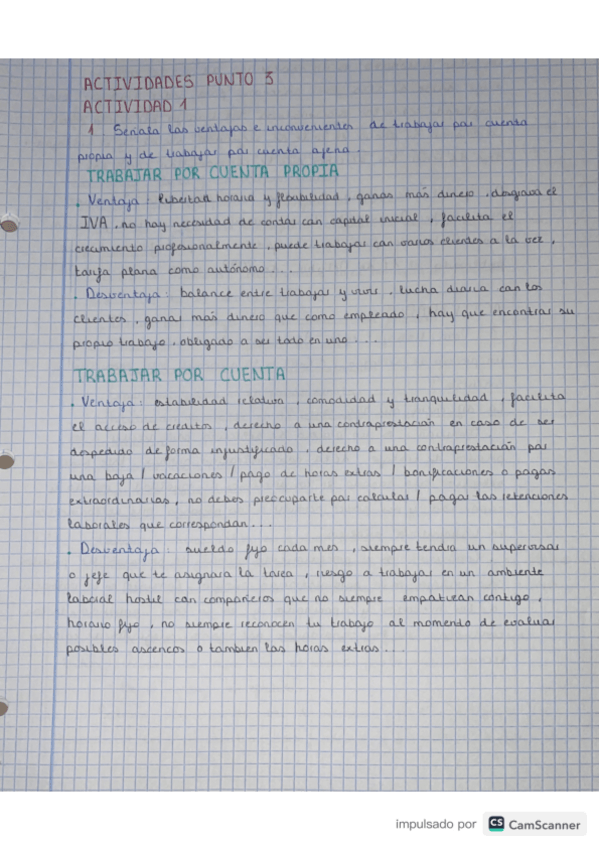 ACTIVIDADES PUNTO 3
ACTIVIDAD 1
1 Señala las ventajas e inconvenientes de trabajar por cuenta
propia y de trabajar por cuenta ajena.
TRABAJAR POR CUENTA PROPIA
. Ventaja : libertad horaria y flexibilidad , ganas más dinero , desgrava el
IVA , no hay necesidad de contar con capital inicial , facilita el
crecimiento profesionalmente , puede trabajar con varios clientes a la vez ,
tarifa plana como autónomo . . .
. Desventaja : balance entre trabajar y vivir , lucha diaria con los
clientes , ganar más dinero que como empleado , hay que encontrar su
propio trabajo , obligado a ser todo en uno . . .
TRABAJAR POR CUENTA
. Ventaja : estabilidad relativa , comodidad y tranquilidad , facilita
el acceso de creditos , derecho a una contraprestación en caso de ser
despedido de forma injustificado , derecho a una contraprestación por
una baja / vacaciones / pago de horas extras / bonificaciones o pagas
extraordinarias , no debes preocuparte por calcular / pagar las retenciones
laborales que correspondan . . .
. Desventaja : sueldo fijo cada mes , siempre tendra un supervisor
o jefe que te asignara la tarea , riesgo a trabajar en un ambiente
laboral hostil con compañeros que no siempre empatizan contigo ,
horario fijo , no siempre reconocen tu trabajo al momento de evaluar
posibles ascencos o tambien las horas extras . . .
impulsado por CS CamScanner